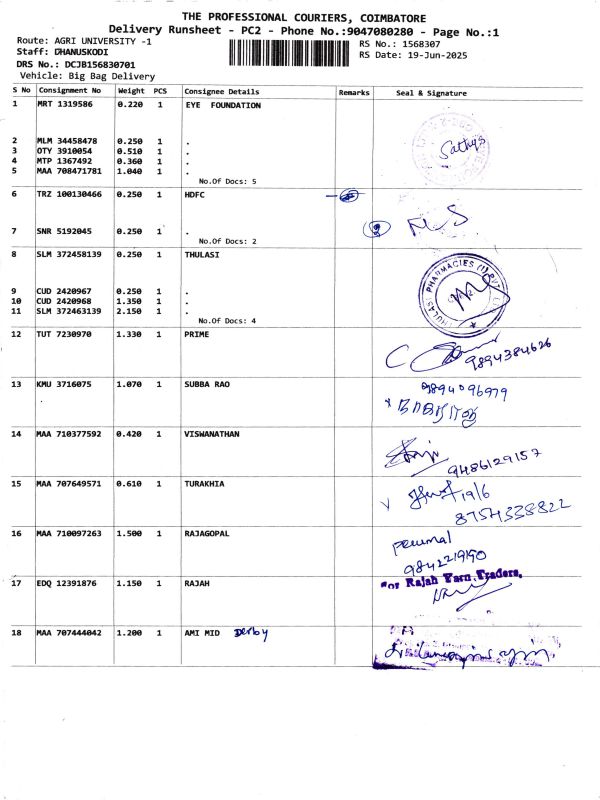 THE PROFESSIONAL COURIERS, COIMBATORE
Delivery Runsheet - PC2 - Phone No.:9047080280 - Page No.:1
Route: AGRI UNIVERSITY -1
RS No.: 1568307
Staff: DHANUSKODI
RS Date: 19-Jun-2025
DRS No.: DCJB156830701
Vehicle: Big Bag Delivery
S No Consignment No Weight PCS Consignee Details Remarks Seal & Signature
1 MRT 1319586 0.220 1 EYE FOUNDATION
2 MLM 34458478 0.250 1 .
Sathys
3 OTY 3910054 0.510 1 .
4 MTP 1367492 0.360 1 .
5 MAA 708471781 1.040 1 .
No.Of Docs: 5
6 TRZ 100130466 0.250 1 HDFC
7 SNR 5192045 0.250 1 .
No.Of Docs: 2
8 SLM 372458139 0.250 1 THULASI
THULASI PHARMACIES (I) PVT
9 CUD 2420967 0.250 1 .
10 CUD 2420968 1.350 1 .
11 SLM 372463139 2.150 1 .
No.Of Docs: 4
12 TUT 7230970 1.330 1 PRIME
9894384626
13 KMU 3716075 1.070 1 SUBBA RAO
9894096979
14 MAA 710377592 0.420 1 VISWANATHAN
9486129157
15 MAA 707649571 0.610 1 TURAKHIA
19/6
8754338822
16 MAA 710097263 1.500 1 RAJAGOPAL
perumal
9842219190
17 EDQ 12391876 1.150 1 RAJAH
For Rajah Yarn Traders,
18 MAA 707444042 1.200 1 AMI MID Derby